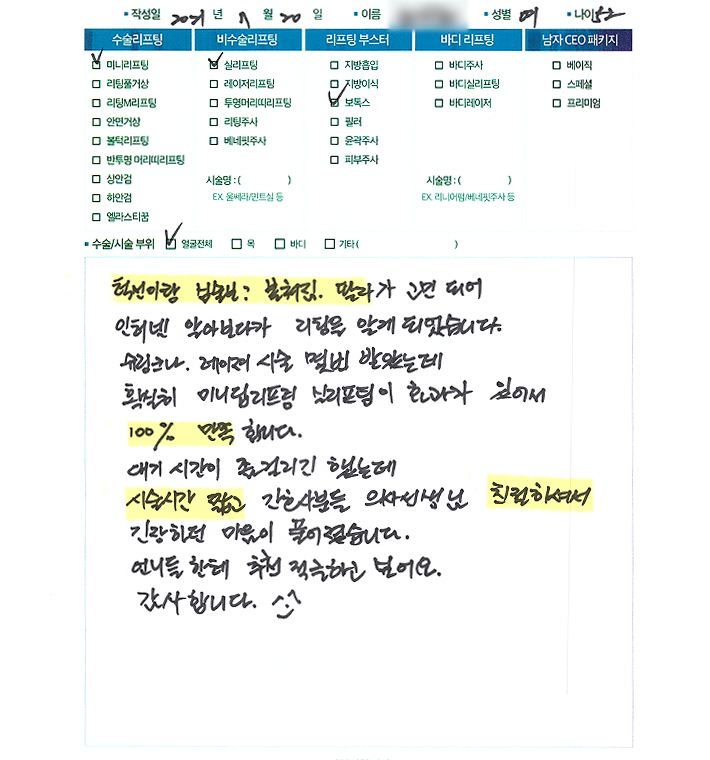 작성일 2021 년 11 월 20 일 이름 성별 여 나이 52
수술리프팅 비수술리프팅 리프팅 부스터 바디 리프팅 남자 CEO 패키지
미니리프팅 실리프팅 지방흡입 바디주사 베이직
리팅풀거상 레이저리프팅 지방이식 바디실리프팅 스페셜
리팅M리프팅 투명머리띠리프팅 보톡스 바디레이저 프리미엄
안면거상 리팅주사 필러
볼턱리프팅 베네핏주사 윤곽주사
반투명 머리띠리프팅 피부주사
상안검 시술명 : ( ) 시술명 : ( )
하안검 EX. 울쎄라/민트실 등 EX. 리니어펌/베네핏주사 등
엘라스티꿈
수술/시술 부위 얼굴전체 목 바디 기타 ( )
턱선이랑 볼쳐짐. 팔라가 고민 되어
인터넷 알아보다가 리팅을 알게 되었습니다.
슈링크나. 레이저 시술 몇번 받았는데
확실히 미니딥리프팅 실리프팅이 효과가 있어서
100% 만족 합니다.
대기 시간이 좀 걸리긴 했는데
시술시간 짧고 간호사분들 의사선생님 친절하셔서
긴장하던 마음이 풀어졌습니다.
언니들 한테 추천 적극하고 있어요.
감사합니다. ^^